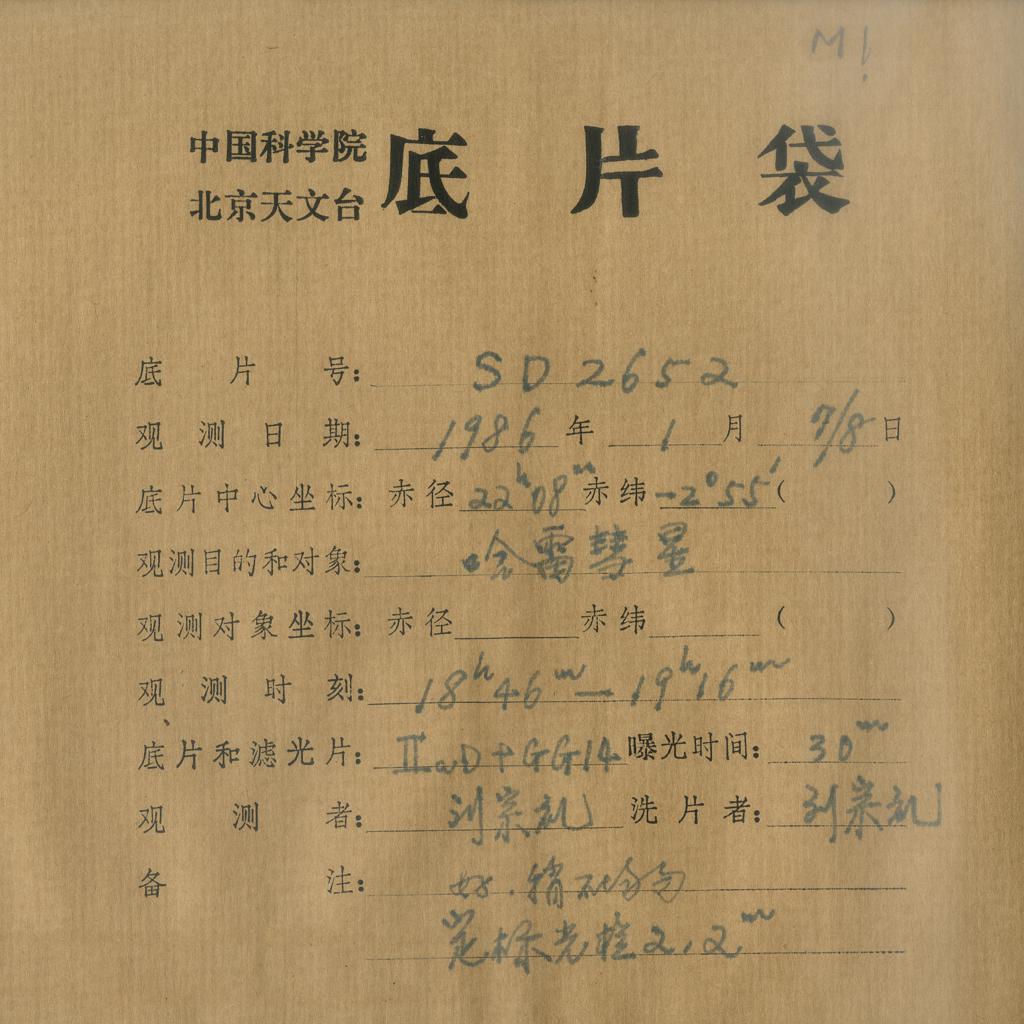 M!
中国科学院
北京天文台
底片袋
底片号: SD2652
观测日期: 1986年 1月 7/8日
底片中心坐标: 赤径 22ʰ08ᵐ 赤纬 -2°55′ ( )
观测目的和对象: 哈雷彗星
观测对象坐标: 赤径 赤纬 ( )
观测时刻: 18ʰ46ᵐ—19ʰ16ᵐ
底片和滤光片: ⅡaD+GG14 曝光时间: 30ᵐ
观测者: 刘宗礼 洗片者: 刘宗礼
备注: 好.稍不均匀
定标光楔2.2ᵐ